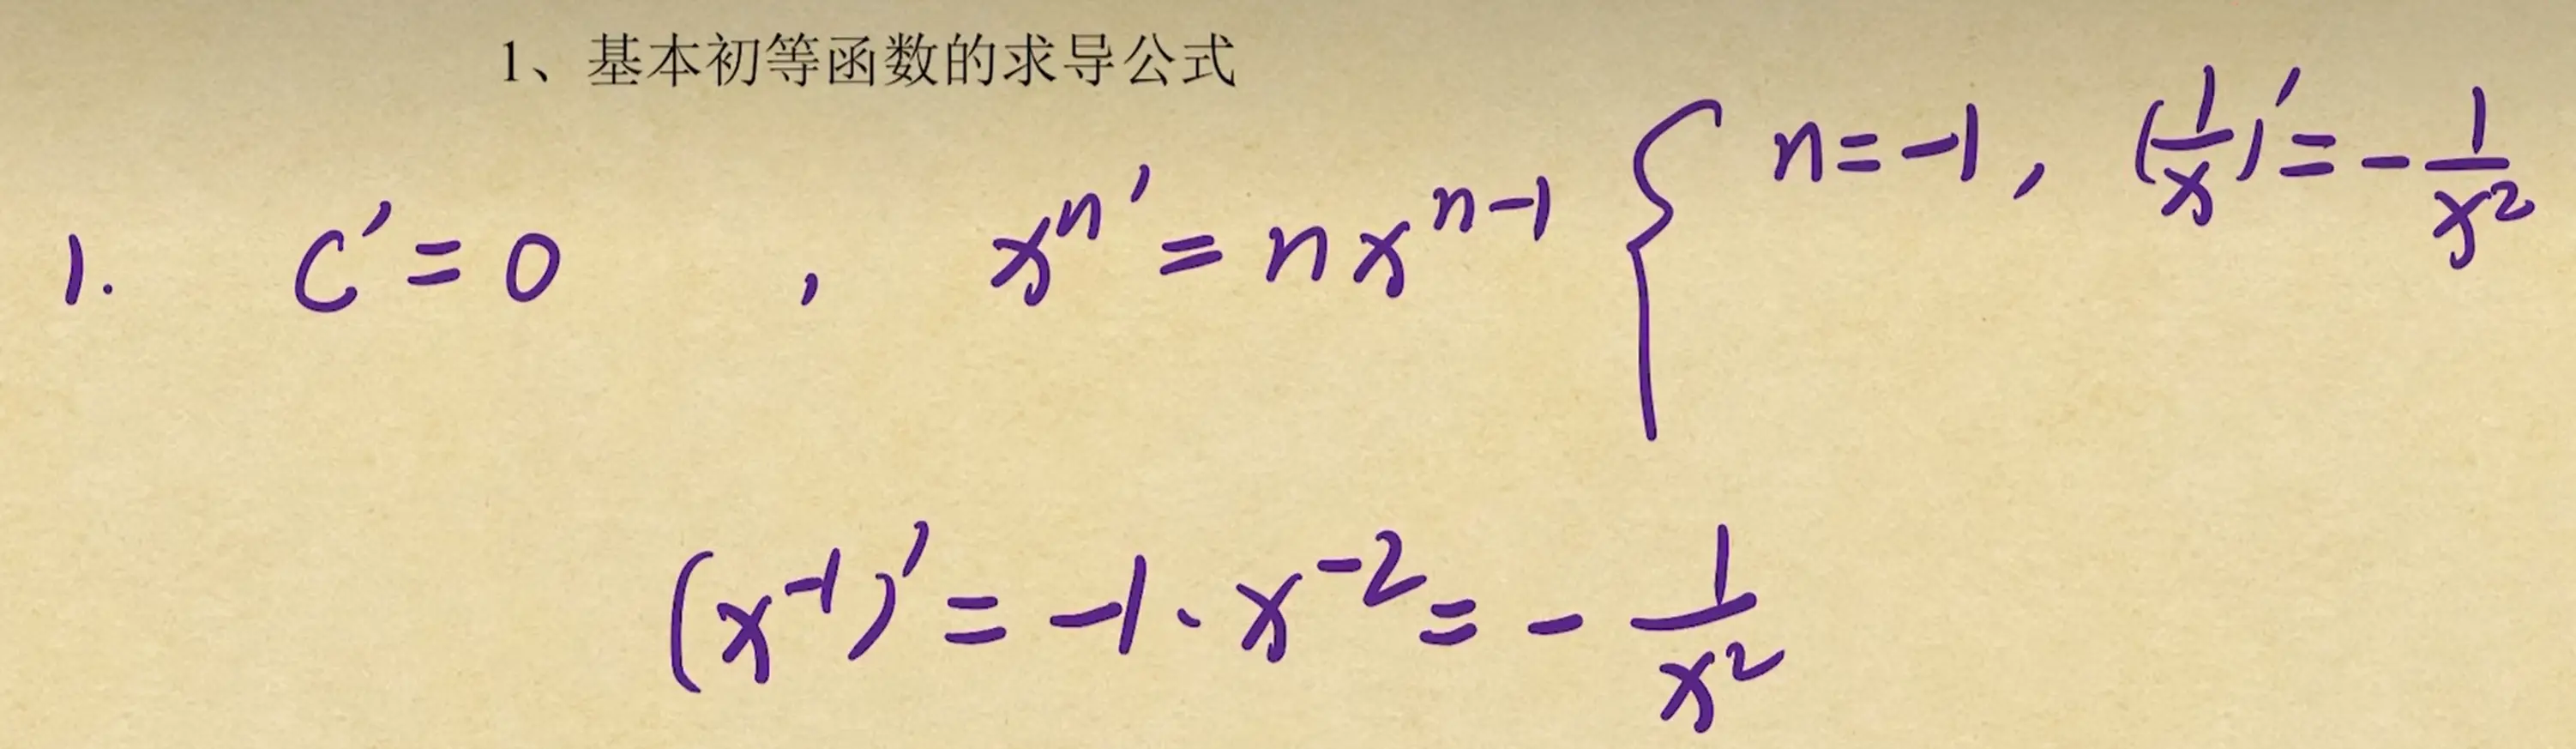 1、基本初等函数的求导公式
1. C′=0 , xⁿ′=nxⁿ⁻¹ { n=-1, (1/x)′=-1/x²
(x⁻¹)′=-1·x⁻²=-1/x²